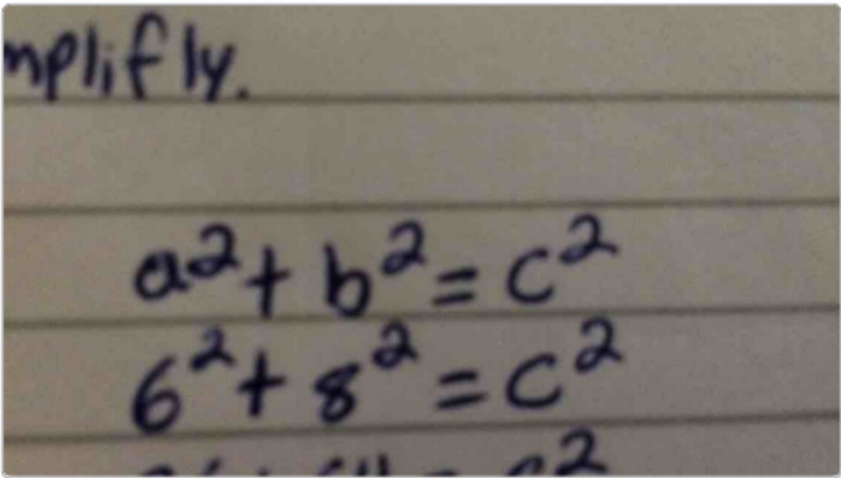 mplifly.
a² + b² = c²
6² + 8² = c²